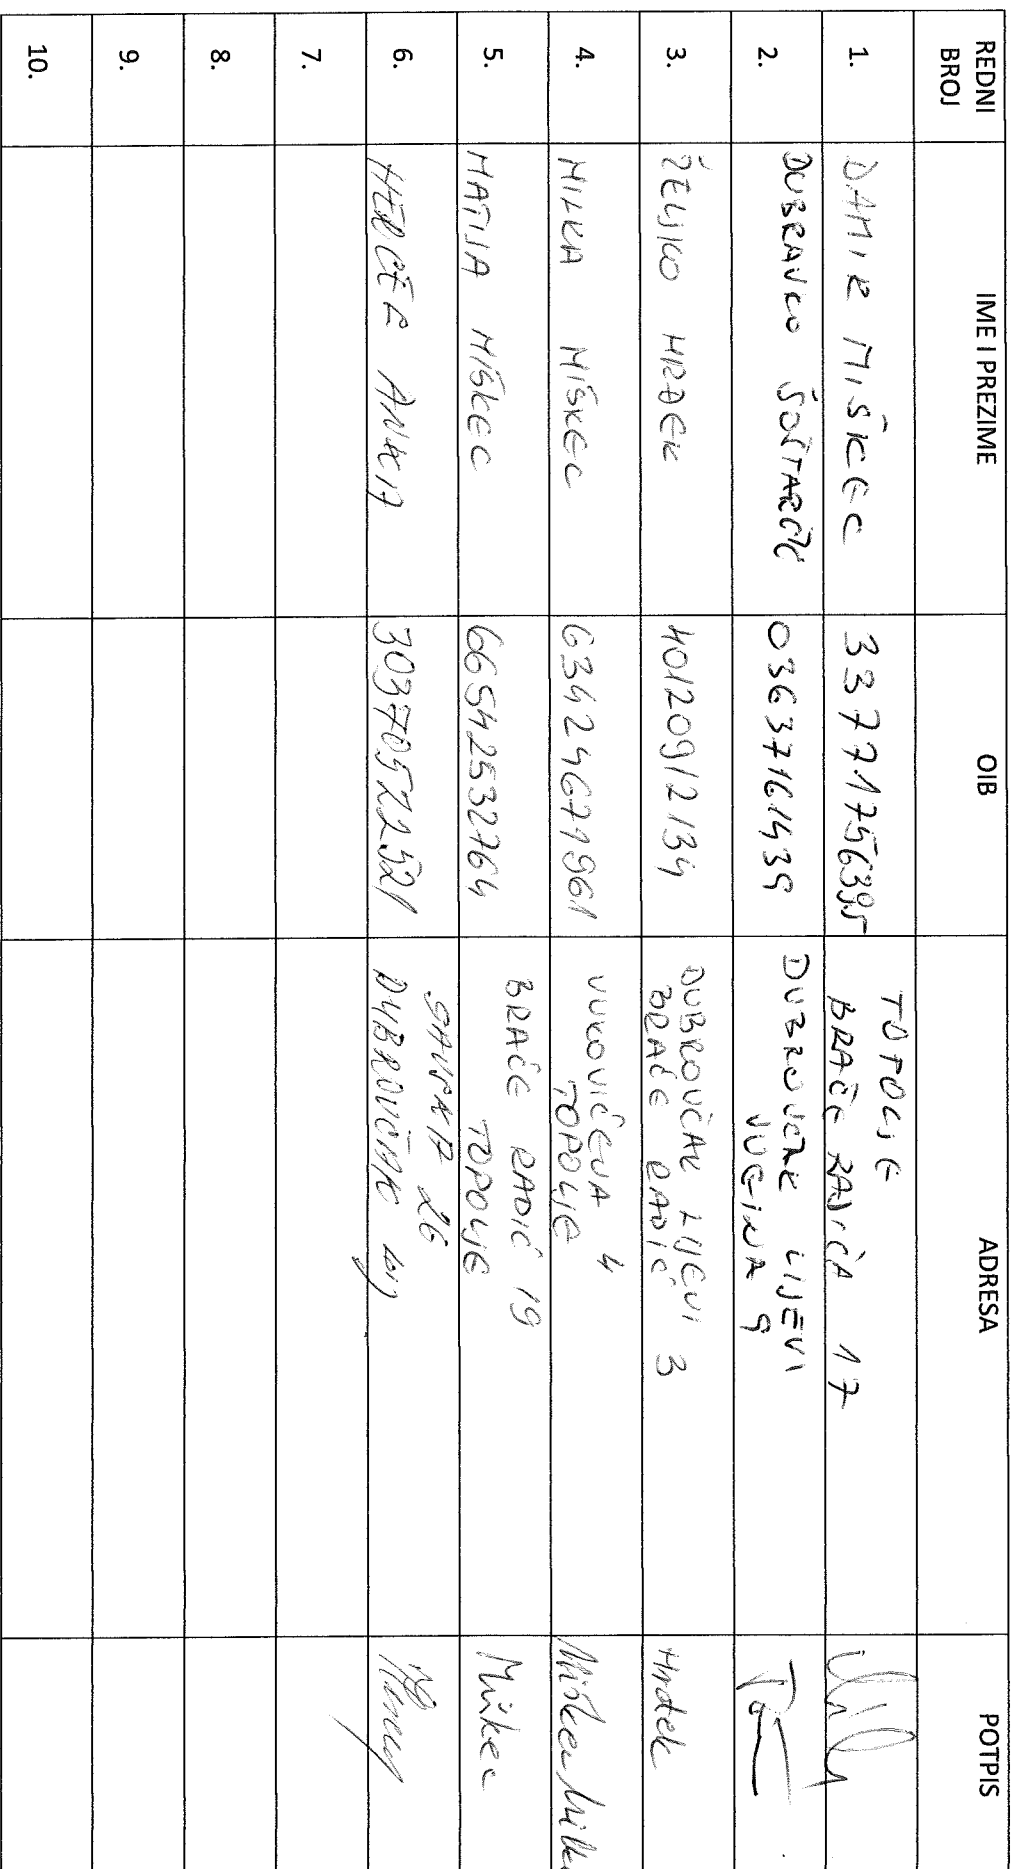 REDNI BROJ IME I PREZIME OIB ADRESA POTPIS
1. DAMIR MIŠKEC 33771756395 TOPOLJE
BRAĆE RADIĆA 17
2. DUBRAVKO ŠOŠTARČIĆ 03637161439 DUBROVČAK LIJEVI
VUGINA 9
3. ŽELJKO HRDEK 40120912134 DUBROVČAK LIJEVI
BRAĆE RADIĆ 3 Hrdek
4. MILKA MIŠKEC 63424671961 VUKOVIĆEVA 4
TOPOLJE Miškec Milka
5. MATIJA MIŠKEC 66542532764 BRAĆE RADIĆ 19
TOPOLJE Miškec
6. HERCEG ANKA SAVSKA 26
DUBROVČAK LIJ
7.
8.
9.
10.